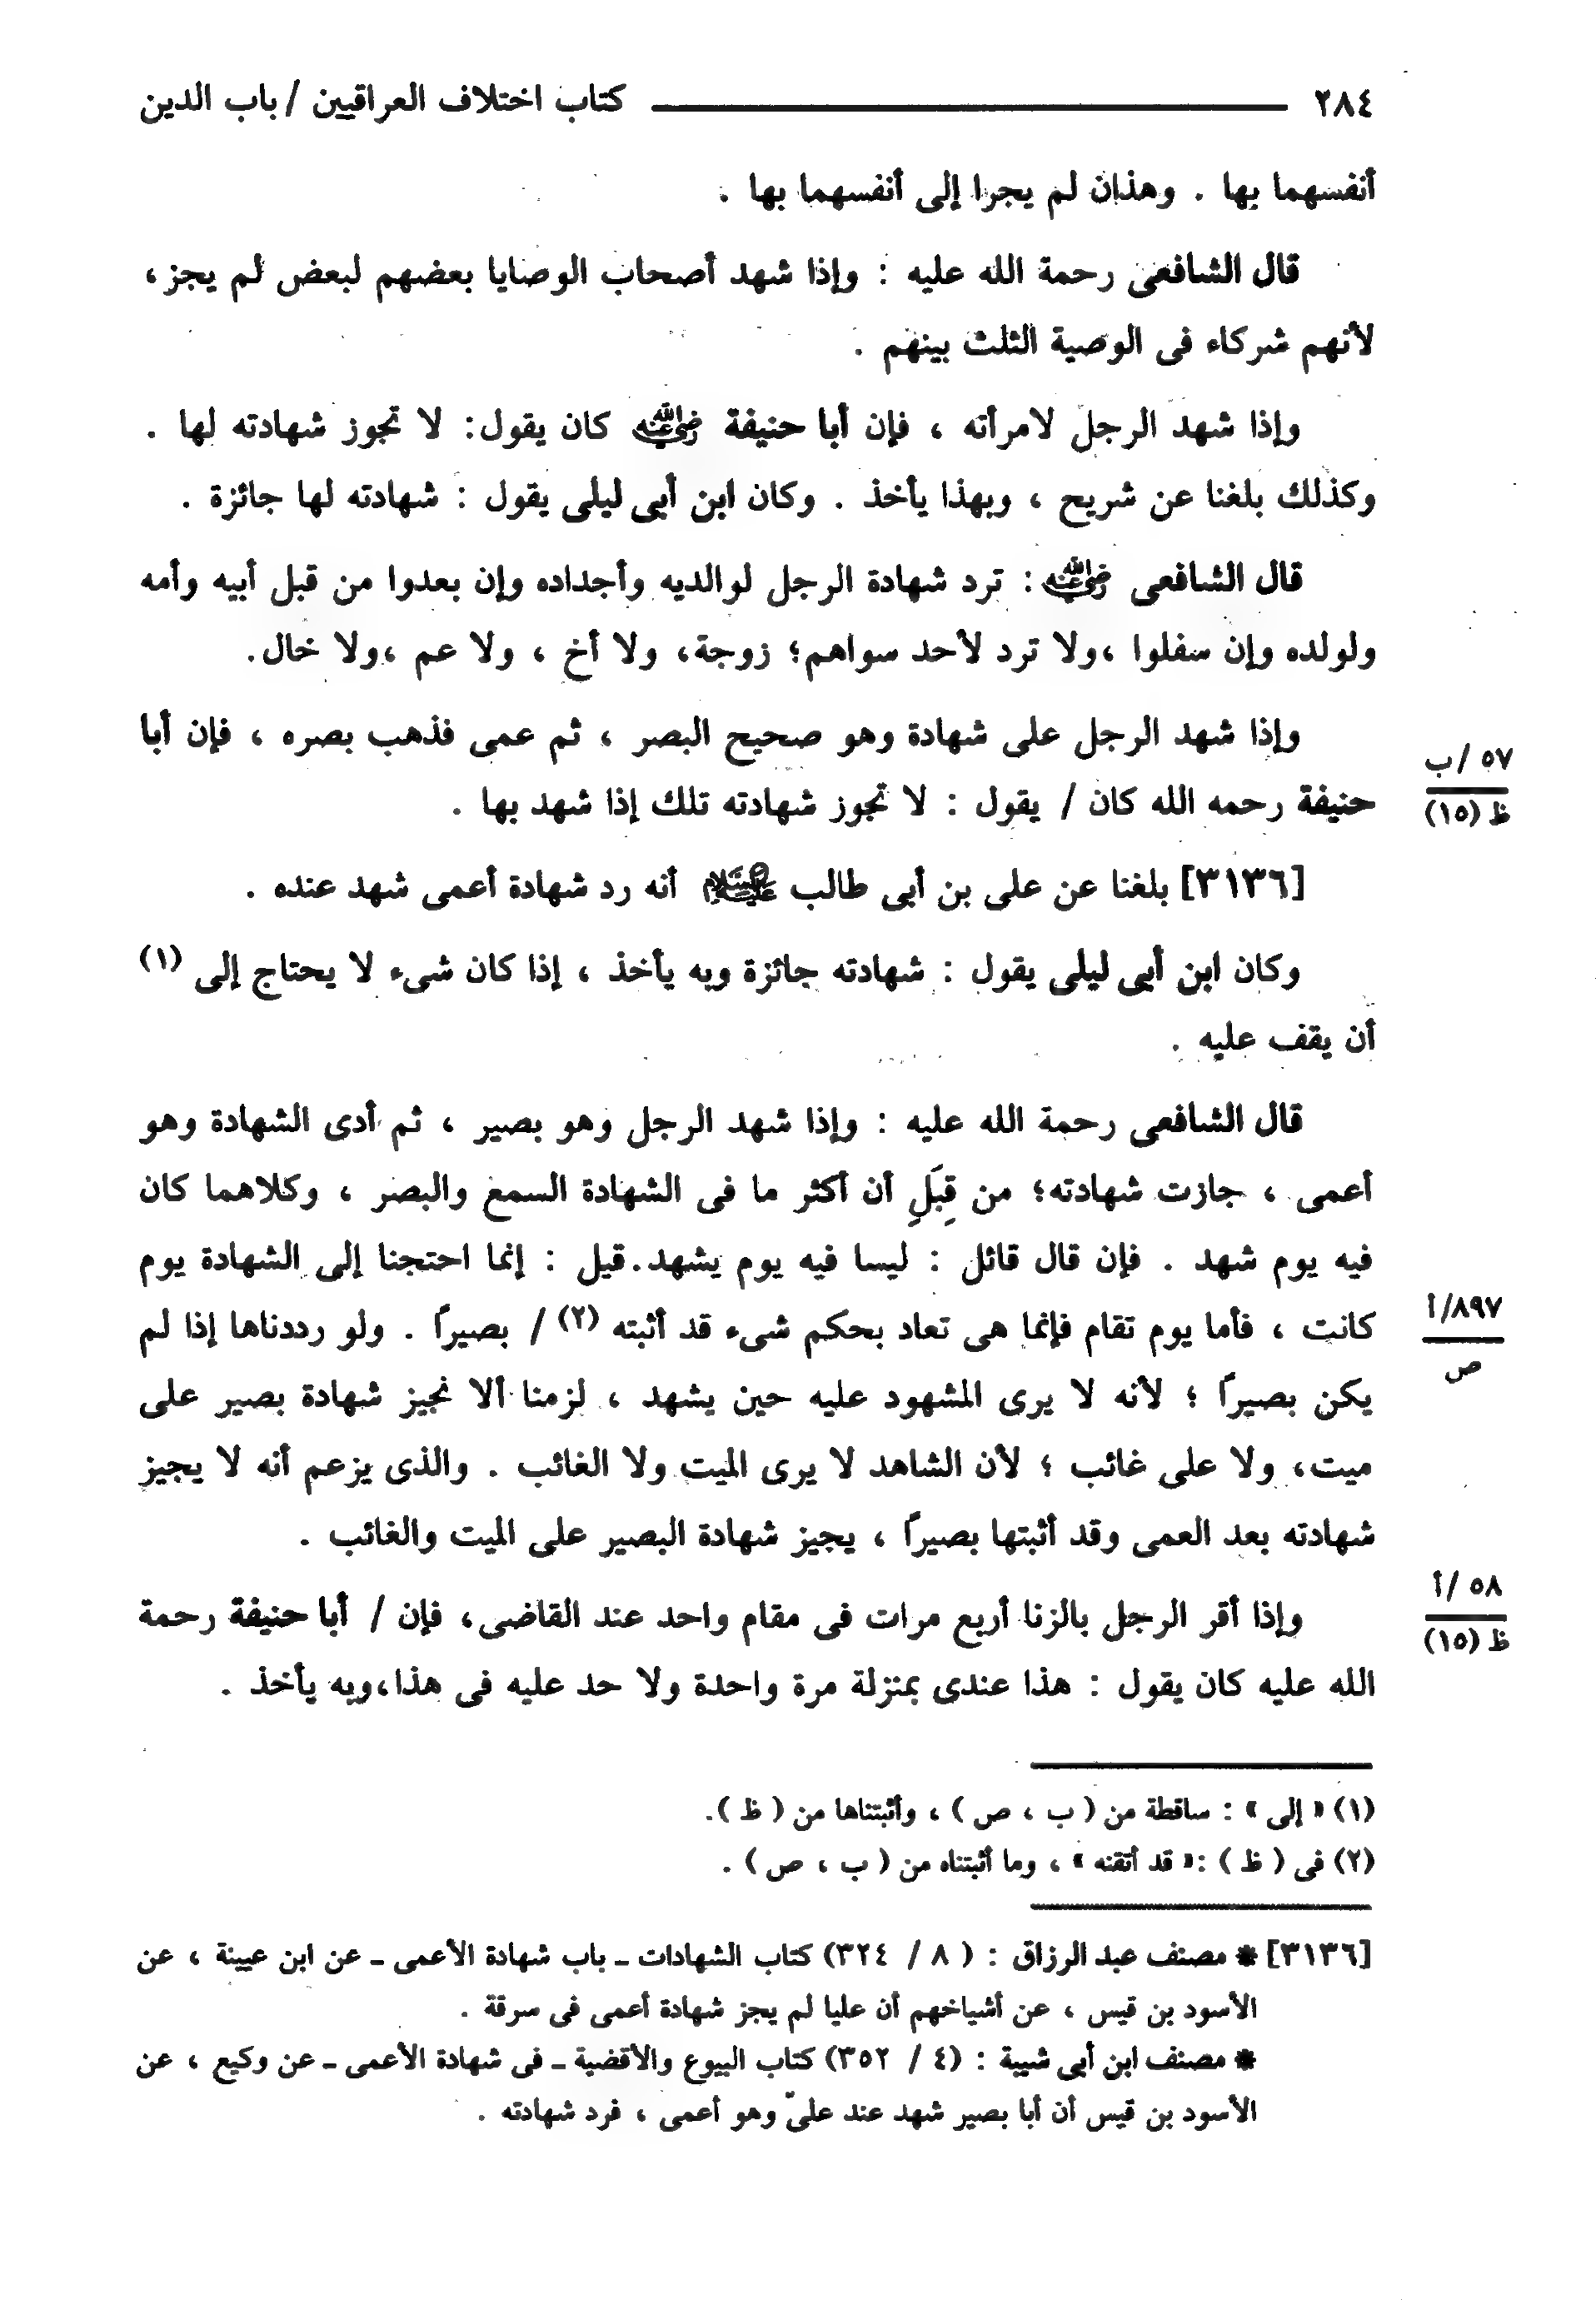 ٢٨٤ كتاب اختلاف العراقيين / باب الدين
أنفسهما بها . وهذان لم يجرا إلى أنفسهما بها .
قال الشافعى رحمة الله عليه : وإذا شهد أصحاب الوصايا بعضهم لبعض لم يجز ،
لأنهم شركاء فى الوصية الثلث بينهم .
وإذا شهد الرجل لامرأته ، فإن أبا حنيفة رضي الله عنه كان يقول : لا تجوز شهادته لها .
وكذلك بلغنا عن شريح ، وبهذا يأخذ . وكان ابن أبى ليلى يقول : شهادته لها جائزة .
قال الشافعى رضي الله عنه : ترد شهادة الرجل لوالديه وأجداده وإن بعدوا من قبل أبيه وأمه
ولولده وإن سفلوا ، ولا ترد لأحد سواهم ؛ زوجة ، ولا أخ ، ولا عم ، ولا خال .
وإذا شهد الرجل على شهادة وهو صحيح البصر ، ثم عمى فذهب بصره ، فإن أبا
٥٧ / ب
ظ (١٥)
حنيفة رحمه الله كان / يقول : لا تجوز شهادته تلك إذا شهد بها .
[٣١٣٦] بلغنا عن على بن أبى طالب عليه السلام أنه رد شهادة أعمى شهد عنده .
وكان ابن أبى ليلى يقول : شهادته جائزة وبه يأخذ ، إذا كان شىء لا يحتاج إلى (١)
أن يقف عليه .
قال الشافعى رحمة الله عليه : وإذا شهد الرجل وهو بصير ، ثم أدى الشهادة وهو
أعمى ، جازت شهادته ؛ من قِبَلِ أن أكثر ما فى الشهادة السمع والبصر ، وكلاهما كان
فيه يوم شهد . فإن قال قائل : ليسا فيه يوم يشهد . قيل : إنما احتجنا إلى الشهادة يوم
٨٩٧ / أ
ص
كانت ، فأما يوم تقام فإنما هى تعاد بحكم شىء قد أثبته (٢) / بصيرًا . ولو رددناها إذا لم
يكن بصيرًا ؛ لأنه لا يرى المشهود عليه حين يشهد ، لزمنا ألا نجيز شهادة بصير على
ميت ، ولا على غائب ؛ لأن الشاهد لا يرى الميت ولا الغائب . والذى يزعم أنه لا يجيز
شهادته بعد العمى وقد أثبتها بصيرًا ، يجيز شهادة البصير على الميت والغائب .
٥٨ / أ
ظ (١٥)
وإذا أقر الرجل بالزنا أربع مرات فى مقام واحد عند القاضى ، فإن / أبا حنيفة رحمة
الله عليه كان يقول : هذا عندى بمنزلة مرة واحدة ولا حد عليه فى هذا ، وبه يأخذ .
(١) « إلى » : ساقطة من ( ب ، ص ) ، وأثبتناها من ( ظ ) .
(٢) فى ( ظ ) : « قد أتقنه » ، وما أثبتناه من ( ب ، ص ) .
[٣١٣٦] * مصنف عبد الرزاق : ( ٨ / ٣٢٤) كتاب الشهادات ـ باب شهادة الأعمى ـ عن ابن عيينة ، عن
الأسود بن قيس ، عن أشياخهم أن عليا لم يجز شهادة أعمى فى سرقة .
* مصنف ابن أبى شيبة : (٤ / ٣٥٢) كتاب البيوع والأقضية ـ فى شهادة الأعمى ـ عن وكيع ، عن
الأسود بن قيس أن أبا بصير شهد عند علىّ وهو أعمى ، فرد شهادته .